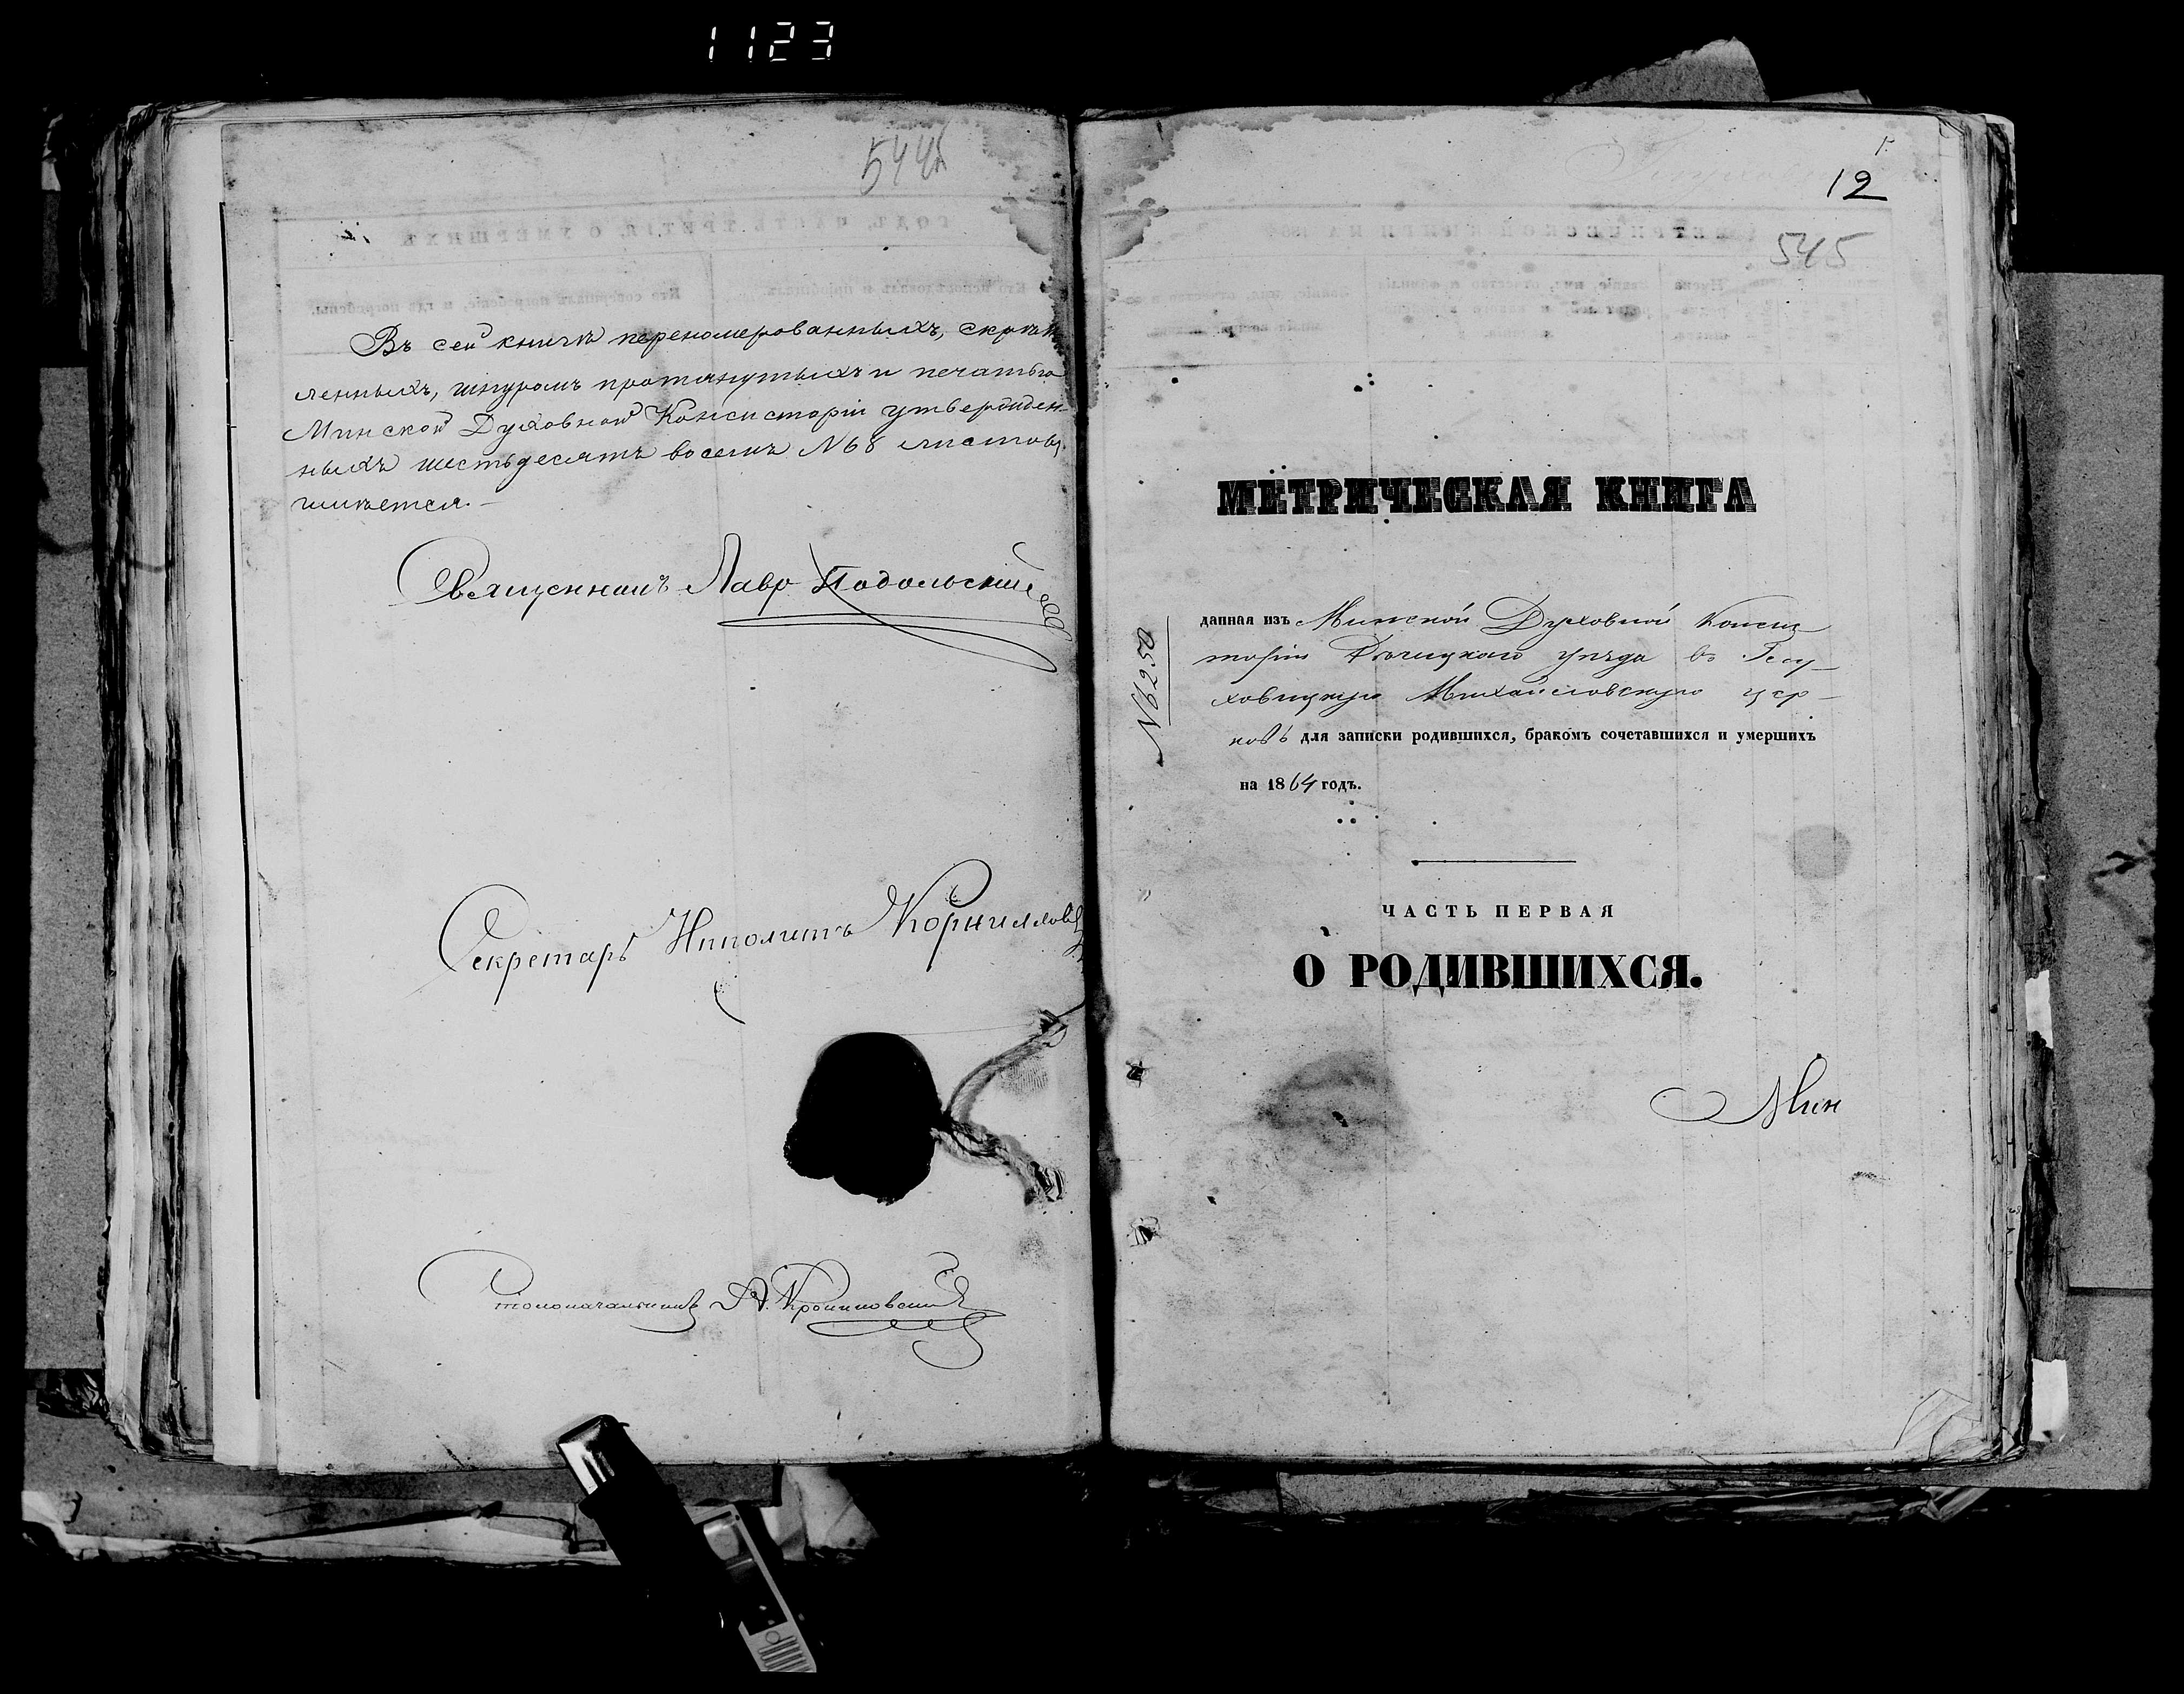 1123
544
Въ сей книгѣ перенomерованныхъ, скрѣп
ленныхъ, шнуромъ протянутыхъ и печатью
Минской Духовной Консисторіи утвержден-
ныхъ шестьдесятъ восемь №68 листовъ
числится.-
Священникъ Лавр Подольскій
Секретарь Ипполитъ Корнилловъ
Столоначальникъ А.
1.
12
545
МЕТРИЧЕСКАЯ КНИГА
№6250
данная изъ Минской Духовной Конси
торіи Рѣчицкаго уѣзда въ Глу-
ховицкую Михайловскую цер-
ковь для записки родившихся, бракомъ сочетавшихся и умершихъ
на 1864 годъ.
ЧАСТЬ ПЕРВАЯ
О РОДИВШИХСЯ.
Мин